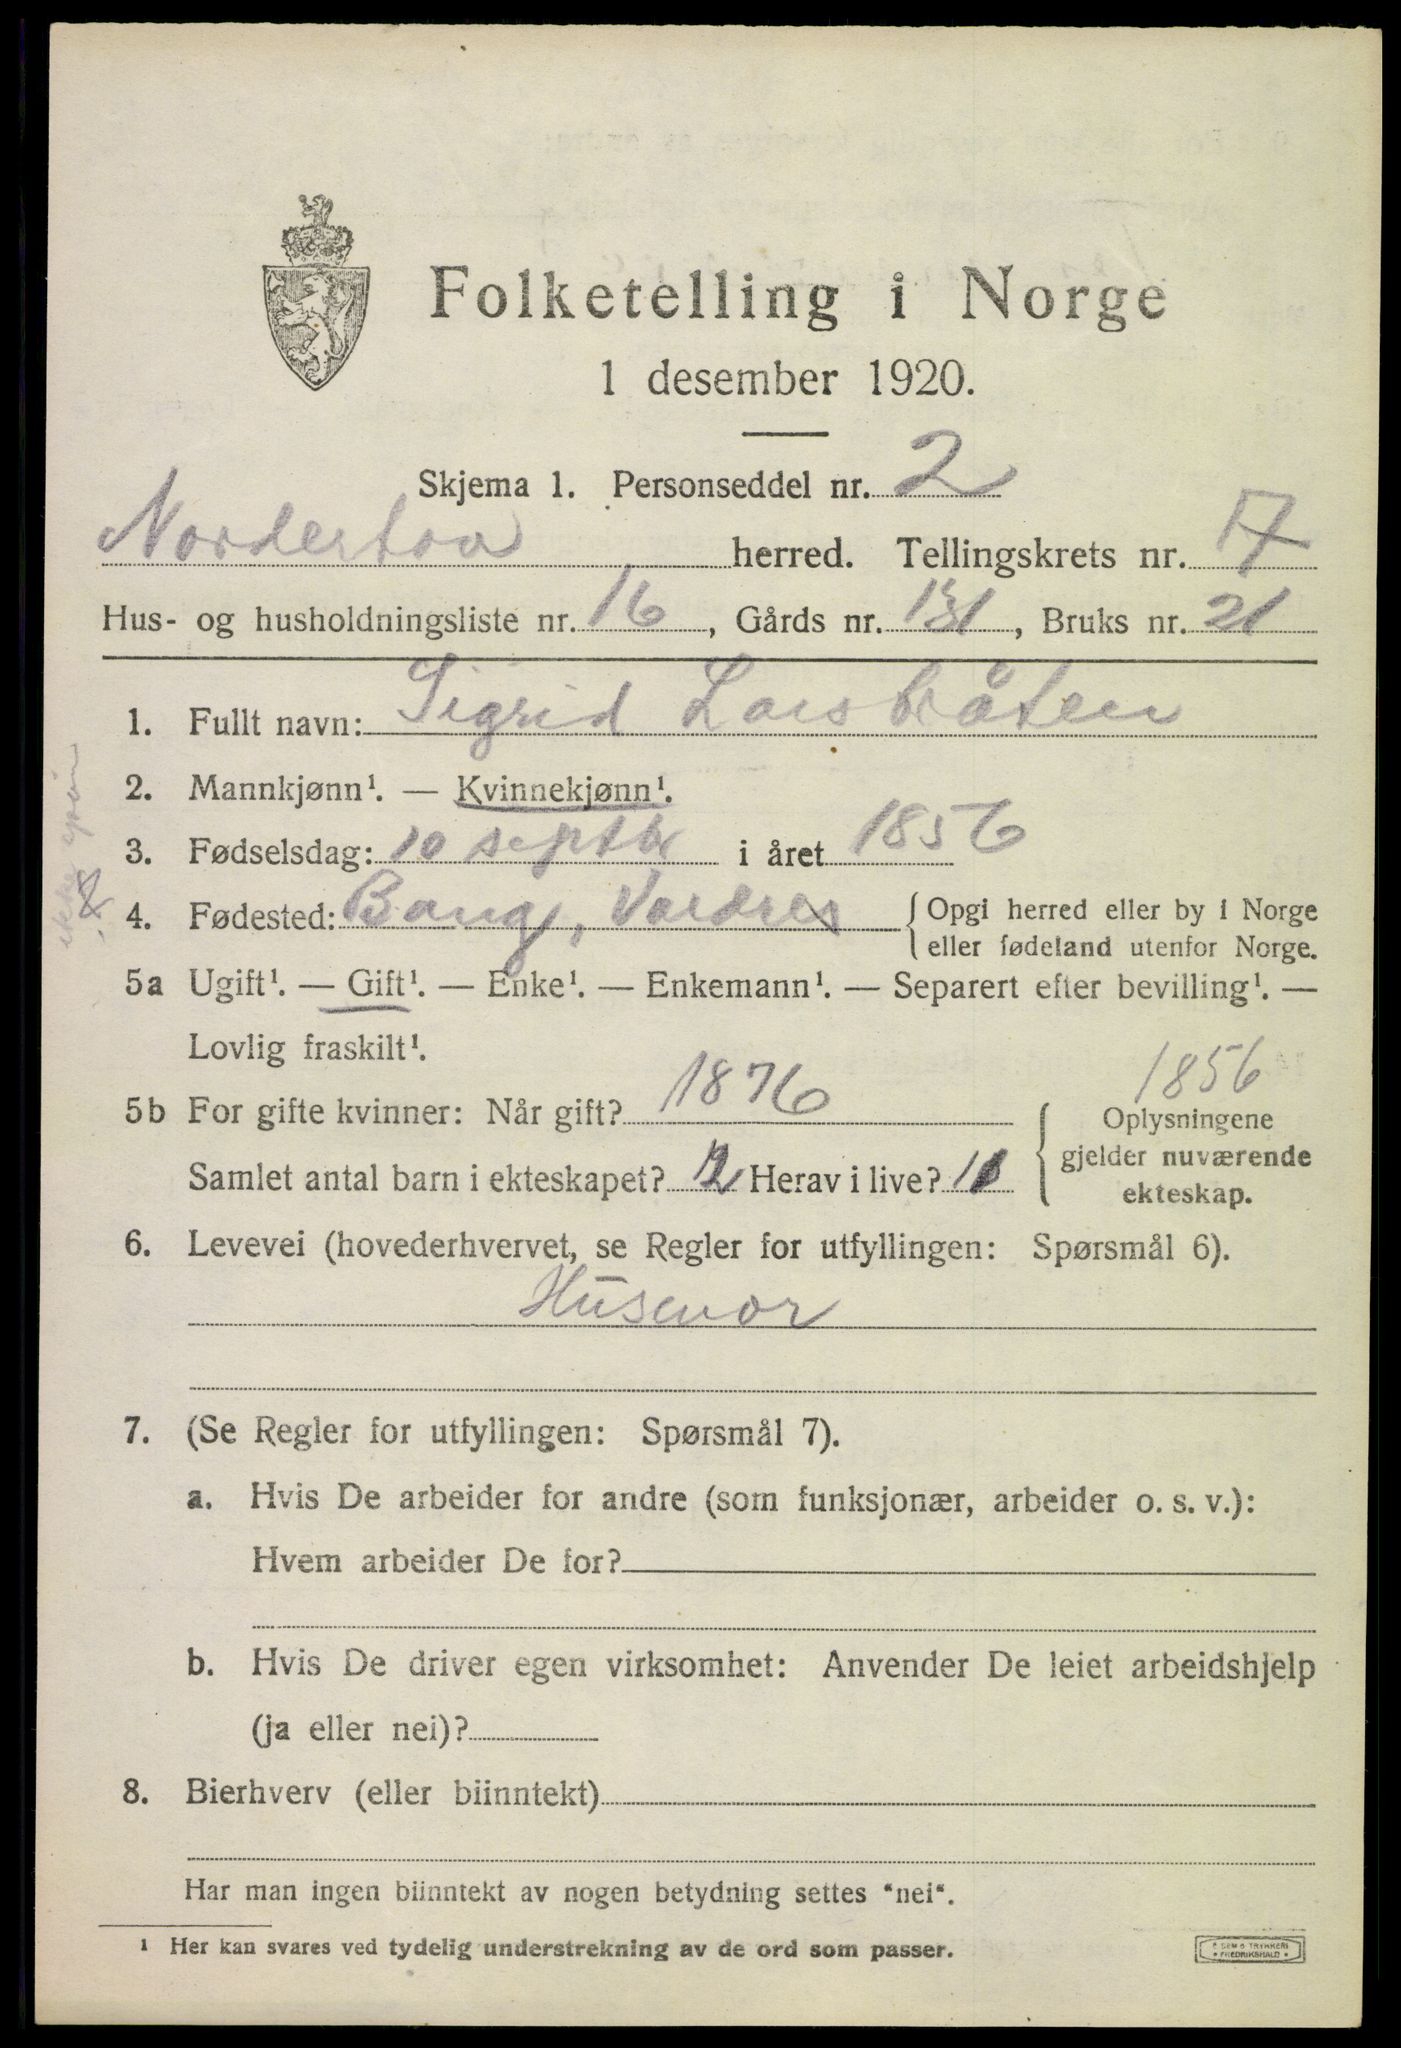 Folketelling i Norge
1 desember 1920.
Skjema 1. Personseddel nr. 2
Norderhov herred. Tellingskrets nr. 17
Hus- og husholdningsliste nr. 16, Gårds nr. 131, Bruks nr. 21
1. Fullt navn: Sigrid Larsbråten
2. Mannkjønn¹. — Kvinnekjønn¹.
3. Fødselsdag: 10 septbr i året 1856
4. Fødested: Bang, Valdres { Opgi herred eller by i Norge
eller fødeland utenfor Norge.
5a Ugift¹. — Gift¹. — Enke¹. — Enkemann¹. — Separert efter bevilling¹. —
Lovlig fraskilt¹.
1856
5b For gifte kvinner: Når gift? 1876 { Oplysningene
gjelder nuværende
ekteskap.
Samlet antal barn i ekteskapet? 12 Herav i live? 11
6. Levevei (hovederhvervet, se Regler for utfyllingen: Spørsmål 6).
Husmor
7. (Se Regler for utfyllingen: Spørsmål 7).
a. Hvis De arbeider for andre (som funksjonær, arbeider o. s. v.):
Hvem arbeider De for?
b. Hvis De driver egen virksomhet: Anvender De leiet arbeidshjelp
(ja eller nei)?
8. Bierhverv (eller biinntekt)
Har man ingen biinntekt av nogen betydning settes "nei".
¹ Her kan svares ved tydelig understrekning av de ord som passer.